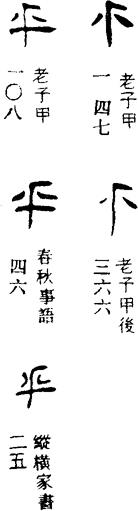 老子甲
一四七
老子甲後
三六六
平
老子甲
一〇八
平
春秋事語
四六
平
縱橫家書
二五